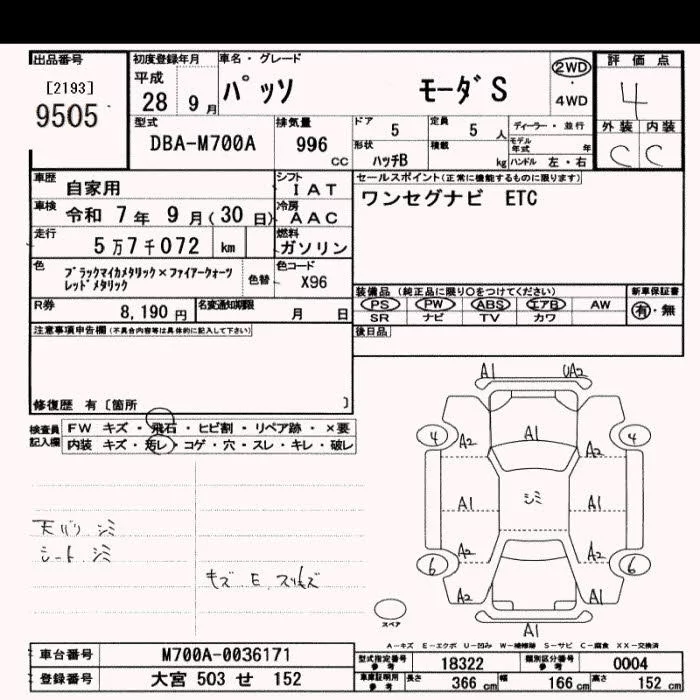 出品番号
[2193]
9505
初度登録年月
平成
28 9月
車名・グレード
パッソ モーダS
2WD
・
4WD
評価点
4
外装 内装
C C
型式
DBA-M700A
排気量
996 CC
ドア 5
定員 5 人
ディーラー・並行
形状 ハッチB
積載 kg
モデル年式 年
ハンドル 左・右
車歴 自家用
シフト IAT
車検 令和 7年 9月(30日)
冷房 AAC
走行 5万7千072 km
燃料 ガソリン
色 ブラックマイカメタリック×ファイアークォーツ
レッドメタリック
色替
色コード X96
R券 8,190円
名変通知期限 月 日
セールスポイント(正常に機能するものに限ります)
ワンセグナビ ETC
装備品(純正品に限り○をつけてください)
PS PW ABS エアB AW
SR ナビ TV カワ
新車保証書
有・無
後日品
注意事項申告欄(不具合内容等は具体的に記入して下さい)
修復歴 有〔箇所 〕
検査員記入欄
FW キズ・飛石・ヒビ割・リペア跡・×要
内装 キズ・汚レ・コゲ・穴・スレ・キレ・破レ
天バリ シミ
シート、シミ
キズ E、スリキズ
A1 UA2
4 A2 A1 A2 4
A1 シミ A1
6 A2 A2 6
A2 A1
スペア
A1
A-キズ E-エクボ U-凹み W-補修跡 S-サビ C-腐食 XX-交換済
車台番号 M700A-0036171
登録番号 大宮 503 せ 152
型式指定番号参考 18322
類別区分番号参考 0004
車庫証明用参考 長さ 366 cm 幅 166 cm 高さ 152 cm